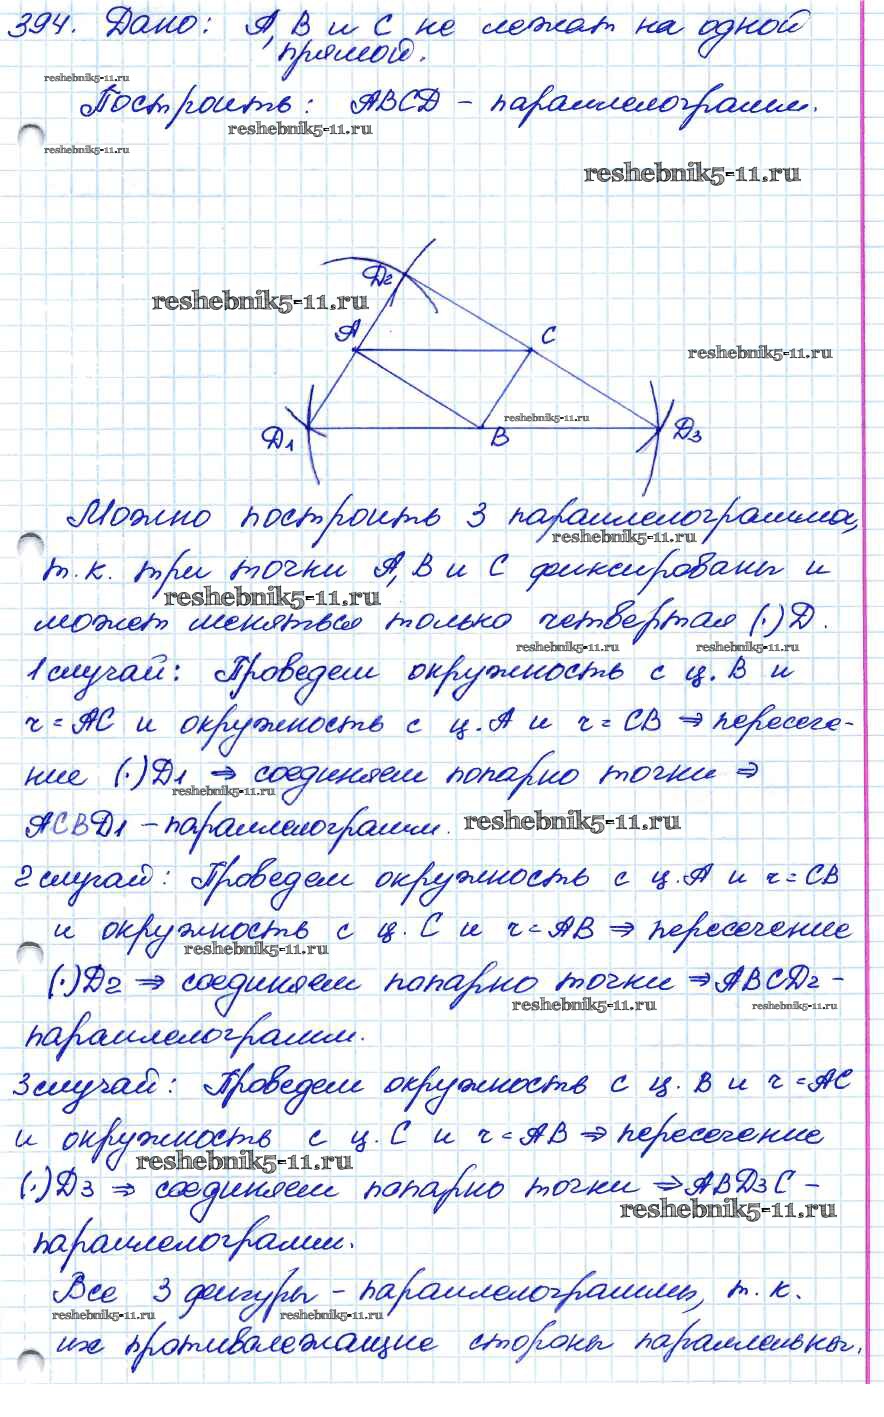 394. Дано: A, B и C не лежат на одной
прямой.
reshebnik5-11.ru
Построить: ABCD - параллелограмм.
reshebnik5-11.ru
reshebnik5-11.ru
reshebnik5-11.ru
D2
reshebnik5-11.ru
A
C
reshebnik5-11.ru
reshebnik5-11.ru
D1
B
D3
Можно построить 3 параллелограмма,
reshebnik5-11.ru
т.к. три точки A, B и C фиксированы и
reshebnik5-11.ru
может меняться только четвертая (·) D.
reshebnik5-11.ru reshebnik5-11.ru
1 случай: Проведем окружность с ц. B и
r = AC и окружность с ц. A и r = CB ⇒ пересече-
ние (·) D1 ⇒ соединяем попарно точки ⇒
reshebnik5-11.ru
ACBD1 - параллелограмм. reshebnik5-11.ru
2 случай: Проведем окружность с ц. A и r = CB
и окружность с ц. C и r = AB ⇒ пересечение
reshebnik5-11.ru
(·) D2 ⇒ соединяем попарно точки ⇒ ABCD2 -
reshebnik5-11.ru reshebnik5-11.ru
параллелограмм.
3 случай: Проведем окружность с ц. B и r = AC
и окружность с ц. C и r = AB ⇒ пересечение
reshebnik5-11.ru
(·) D3 ⇒ соединяем попарно точки ⇒ ABD3C -
reshebnik5-11.ru
параллелограмм.
Все 3 фигуры - параллелограммы, т.к.
reshebnik5-11.ru reshebnik5-11.ru
их противолежащие стороны параллельны.